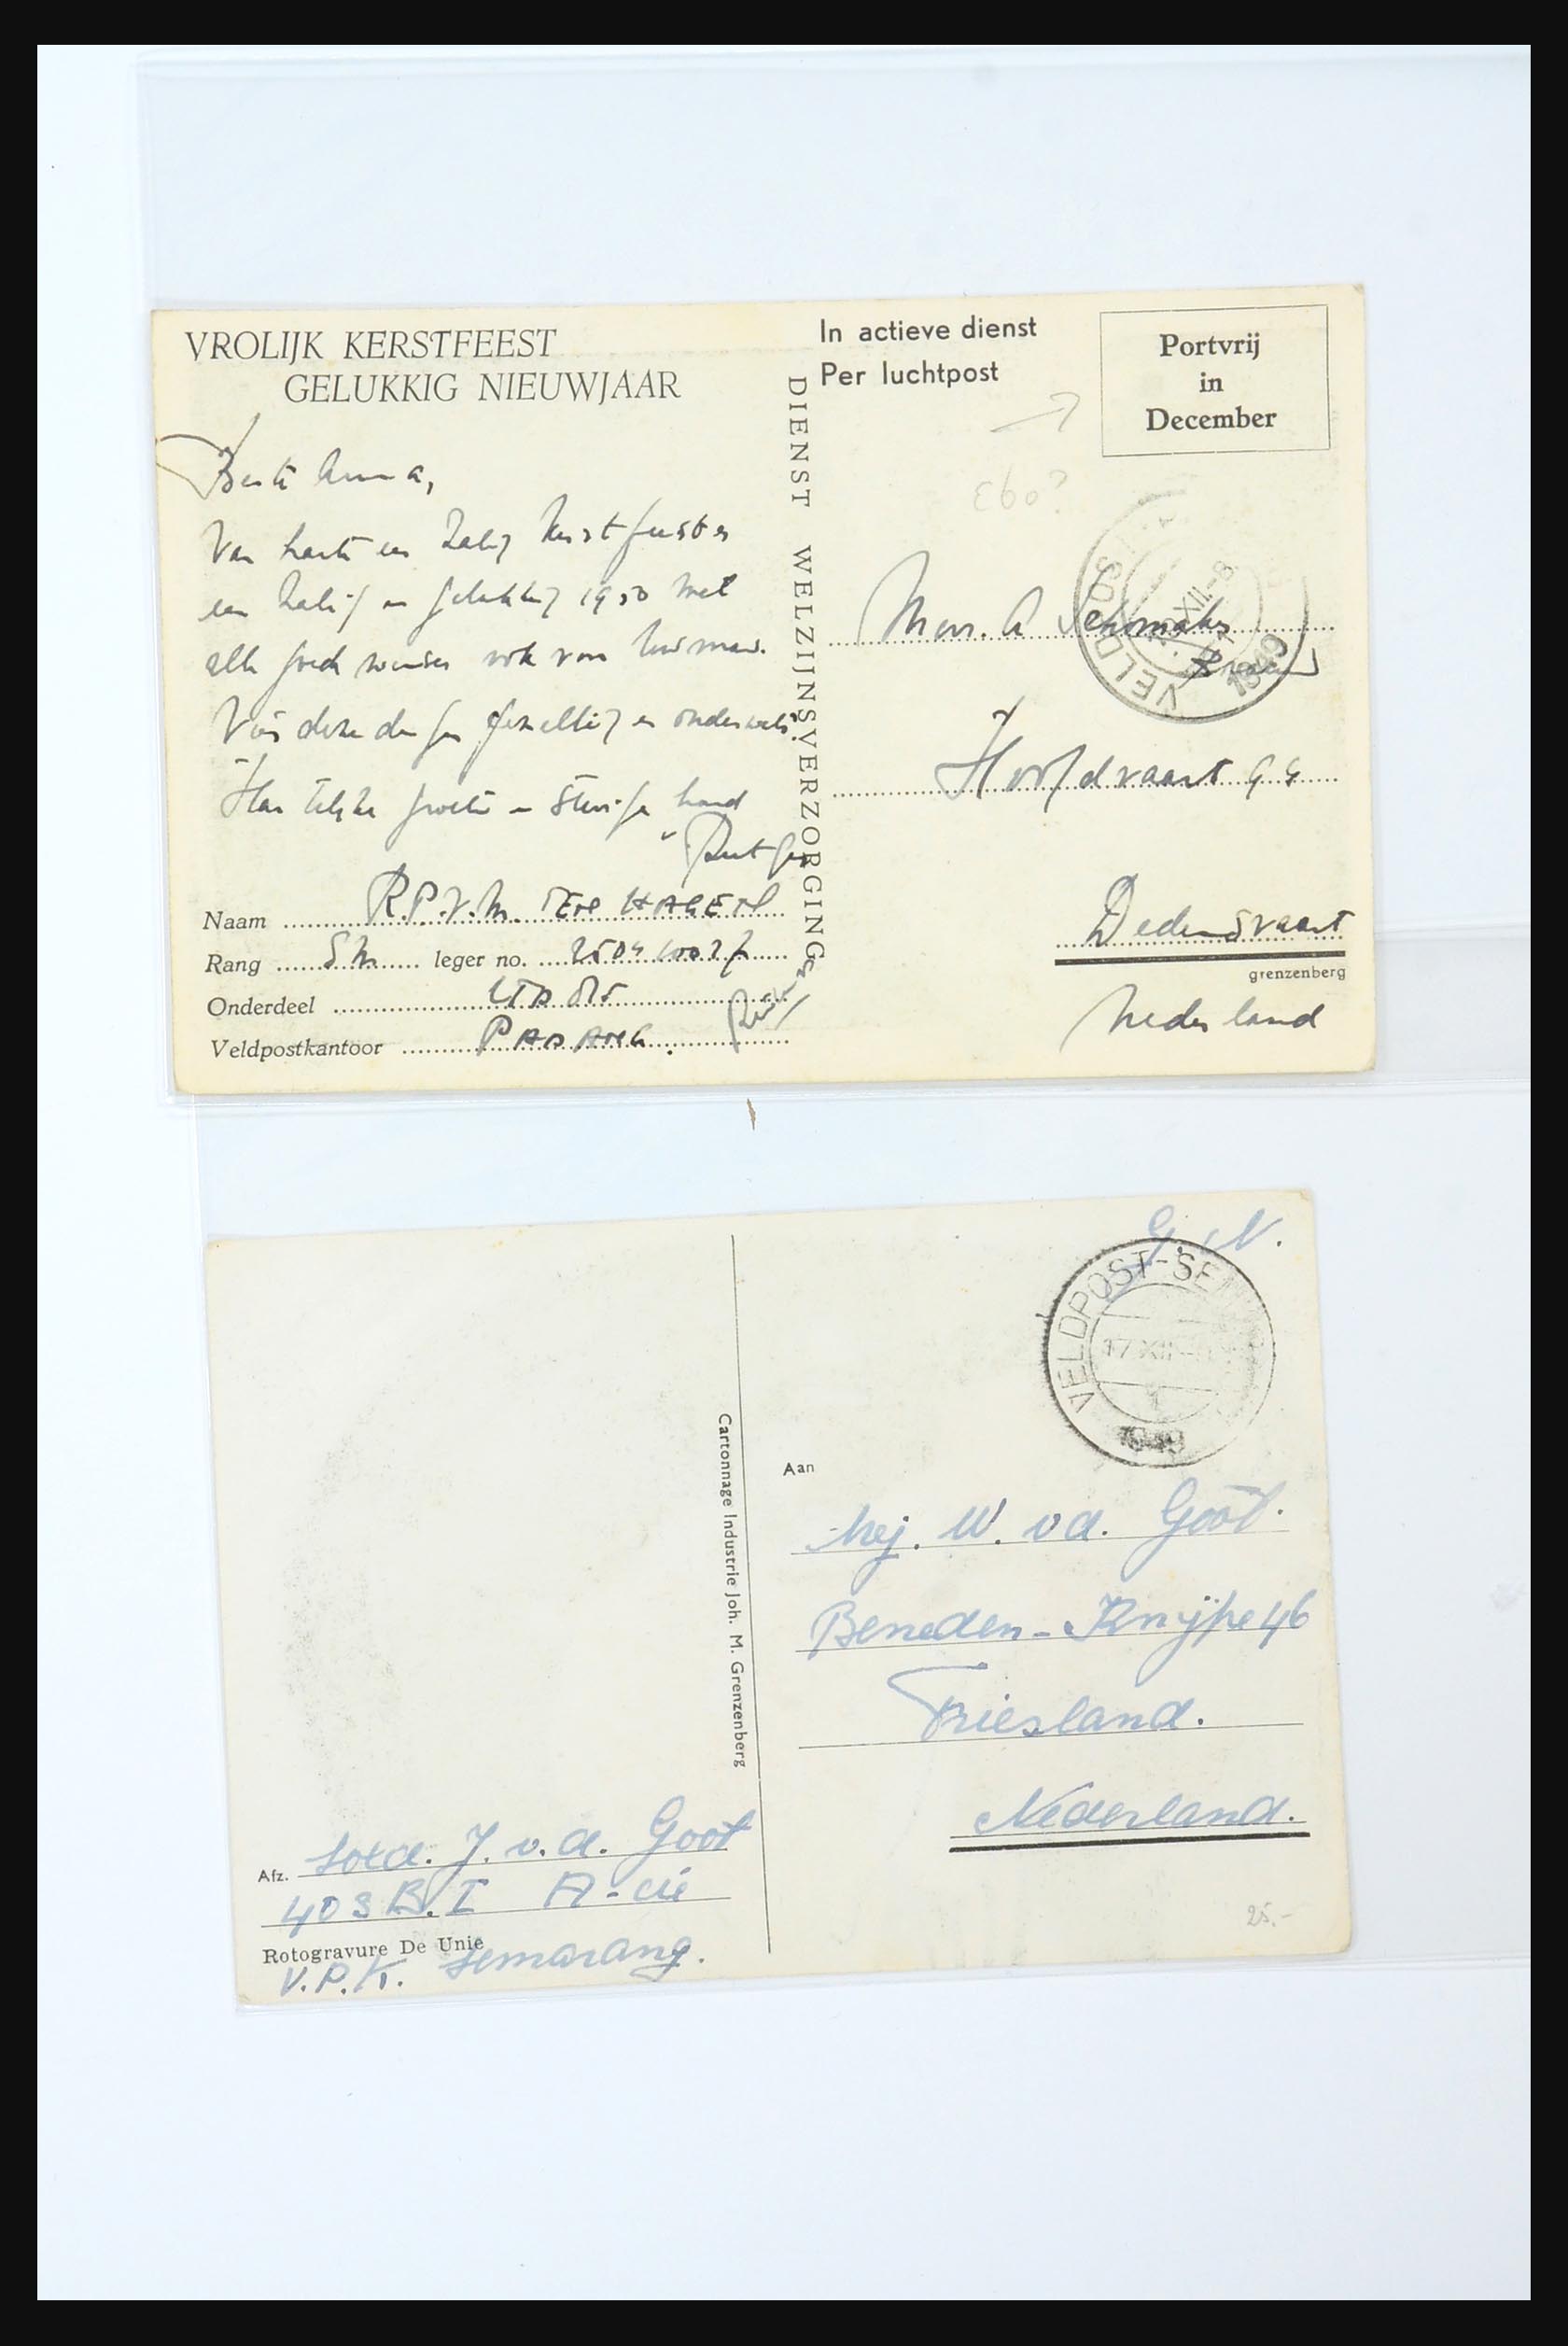 VROLIJK KERSTFEEST
GELUKKIG NIEUWJAAR
Beste Anna,
Van harte een Zalig Kerstfeest en
een Zalig en gelukkig 1950 met
alle goede wensen ook voor
Voor deze dagen gezellig en
Hartelijke groeten en stevige hand
Rutger
Naam R.P.V.M. TEN HAGEN
Rang SM leger no.
Onderdeel
Veldpostkantoor PADANG.
DIENST WELZIJNSVERZORGING
In actieve dienst
Per luchtpost
Portvrij
in
December
E60?
VELDPOST
XII-8
1949
Mevr. A Schomaker
Hoofdvaart
Dedemsvaart
grenzenberg
Nederland
G. N.
VELDPOST-SEM
17 XII
1949
Cartonnage Industrie Joh. M. Grenzenberg
Aan
Mej. W. v d. Goot.
Beneden-Knijpe 46
Friesland.
Nederland.
Afz. Sold. J. v. d. Goot
403 B.I A-cie
Rotogravure De Unie
V.P.K. Semarang.
25.-